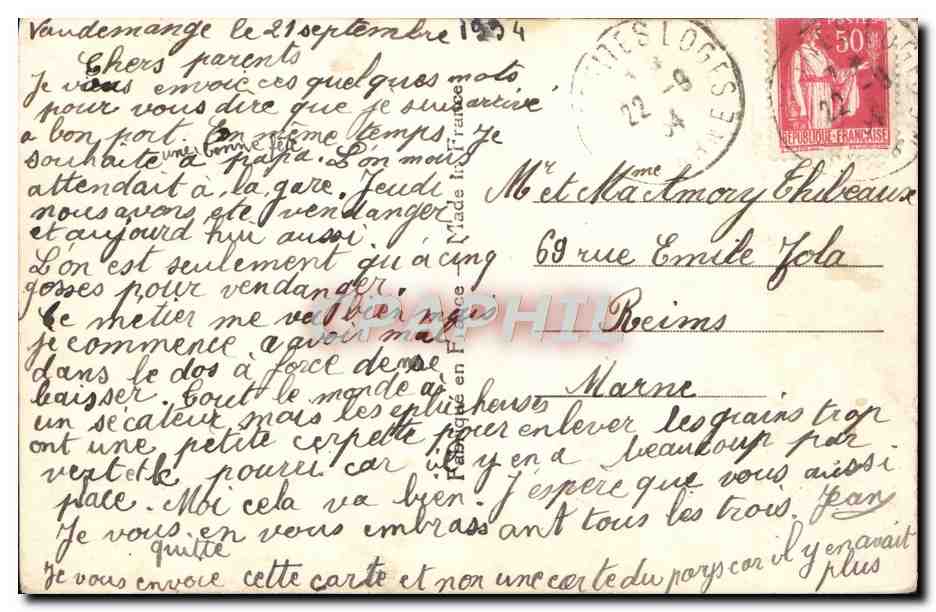 Vaudemange le 21 septembre 1934
Chers parents
Je vous envoie ces quelques mots
pour vous dire que je suis arrivé
a bon port. En même temps. Je
souhaite une bonne fête à papa. L'on mais
attendait à la gare. Jeudi
nous avons eté vendanger
et aujourd hui aussi.
L'on est seulement qu'à cinq
gosses pour vendanger.
Le métier me va bien mais
je commence a avoir mal
dans le dos à force de me
baisser. Tout le monde a
un sécateur mais les éplucheuses
ont une petite cerpette pour enlever les grains trop
vert et le pourri car il y en a beaucoup par
place. Moi cela va bien. J'éspère que vous aussi
Je vous quitte en vous embrassant tous les trois. Jean
Je vous envoie cette carte et non une carte du pays car il y en avait
plus
Mr et Mme Amory Thibeaux
69 rue Emile Zola
Reims
Marne
Fabriqué en France — Made in France
LOGES
22 -9
34
POSTES
50
REPUBLIQUE-FRANÇAISE
22 -9
CPAPHIL